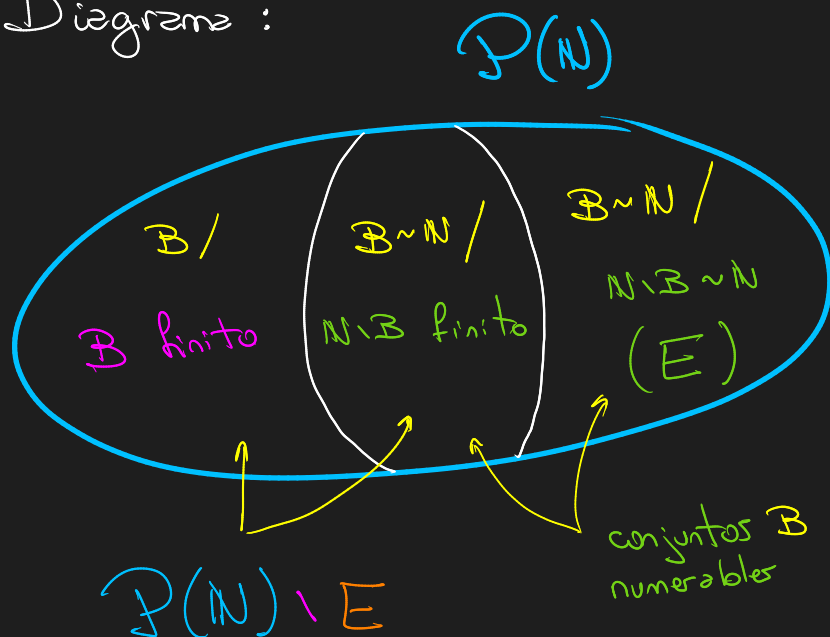 Diagrama :
P(ℕ)
B /
B finito
B ~ ℕ /
ℕ \ B finito
B ~ ℕ /
ℕ \ B ~ ℕ
(E)
conjuntos B
numerables
P(ℕ) \ E